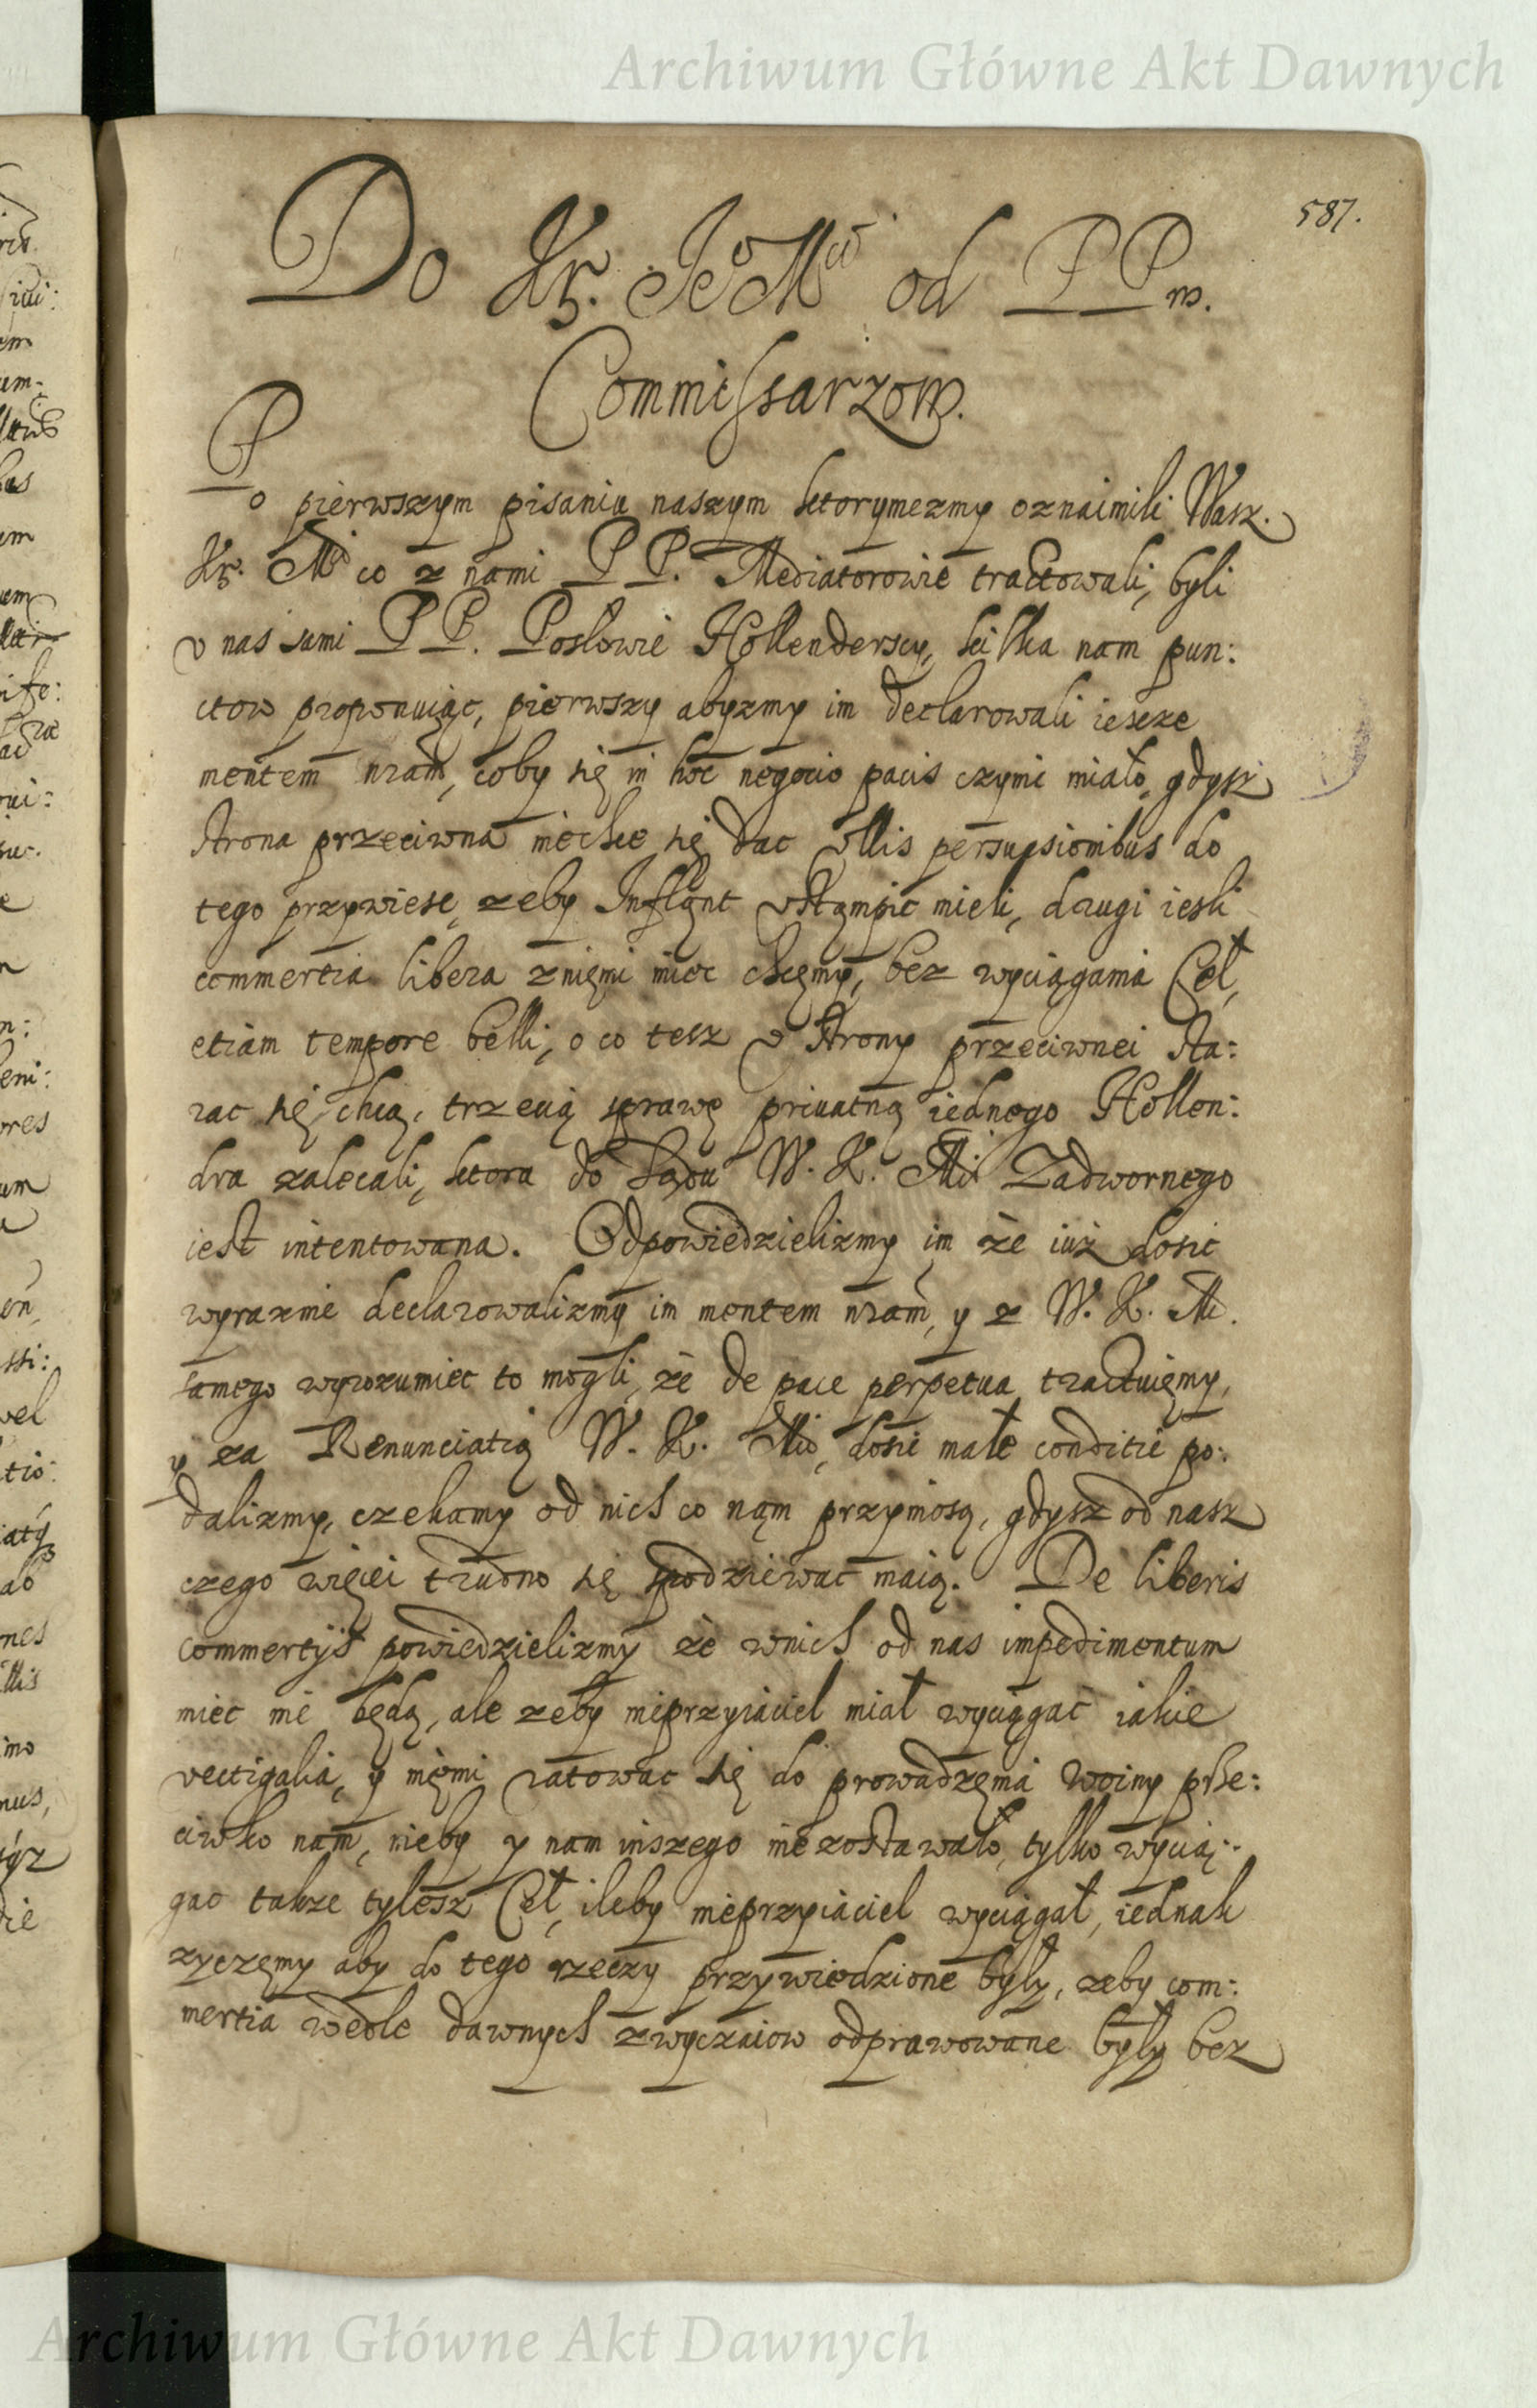 Archiwum Główne Akt Dawnych
587.
Do Kr. JeoMci od PPw.
Commissarzow.
Po pierwszym pisaniu naszym ktorymezmy oznaimili Wasz.
Kr. Mci co z nami PP. Mediatorowie tractowali, byli
v nas sami PP. Posłowie Hollenderscy, kilka nam pun:
ctow proponuiąc, pierwszy abyzmy im declarowali iescze
mentem nram, coby się in hoc negocio pacis czynic miało, gdysz
strona przeciwna niechce się dac vllis persuasionibus do
tego przywiesc, zeby Inflant vstąmpic mieli, drugi iesli
commertia libera znięmi miec chcęmy, bez wyciągania Ceł,
etiam tempore belli, o co tesz v strony przeciwnei sta:
rac się chcą, trzecią sprawę priuatną iednego Hollen:
dra zalecali, ktora do Sądu W. K. Mci Zadwornego
iest intentowana. Odpowiedzielizmy im że iuż dosic
wyraznie declarowalizmy im mentem nram, y z W. K. M.
samego wyrozumiec to mogli, że de pace perpetua tractuięmy,
y za Renunciatią W. K. Mci, dosic małe conditie po:
dalizmy, czekamy od nich co nąm przyniosą, gdysz od nasz
czego więcei trudno się spodziewac maią. De liberis
commertijs powiedzielizmy że wnich od nas impedimentum
miec nie będą, ale zeby nieprzyiaciel miał wyciągac iakie
vectigalia, y nięmi ratowac się do prowadzęnia woiny prze:
ciwko nam, nieby y nam inszego niezostawało, tylko wycią:
gac takze tylesz Ceł, ileby nieprzyiaciel wyciągał, iednak
zyczęmy aby do tego rzeczy przywiedzione były, zeby com:
mertia wedle dawnych zwyczaiow odprawowane były bez
Archiwum Główne Akt Dawnych